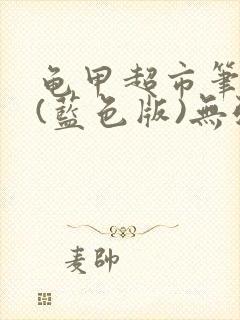 龟甲超市筆
(藍色版)無
麦帥